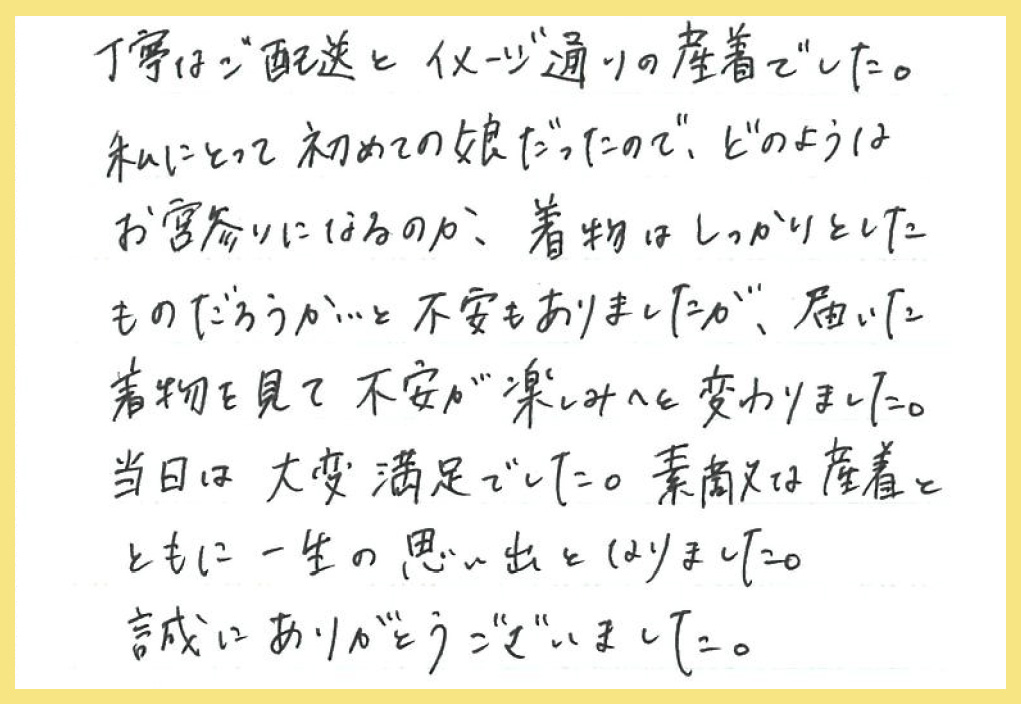 丁寧なご配送と イメージ通りの産着でした。
私にとって 初めての娘だったので、どのような
お宮参りになるのか、着物はしっかりとした
ものだろうか…と 不安もありましたが、届いた
着物を見て 不安が楽しみへと変わりました。
当日は 大変満足でした。素敵な産着と
ともに 一生の思い出となりました。
誠にありがとうございました。